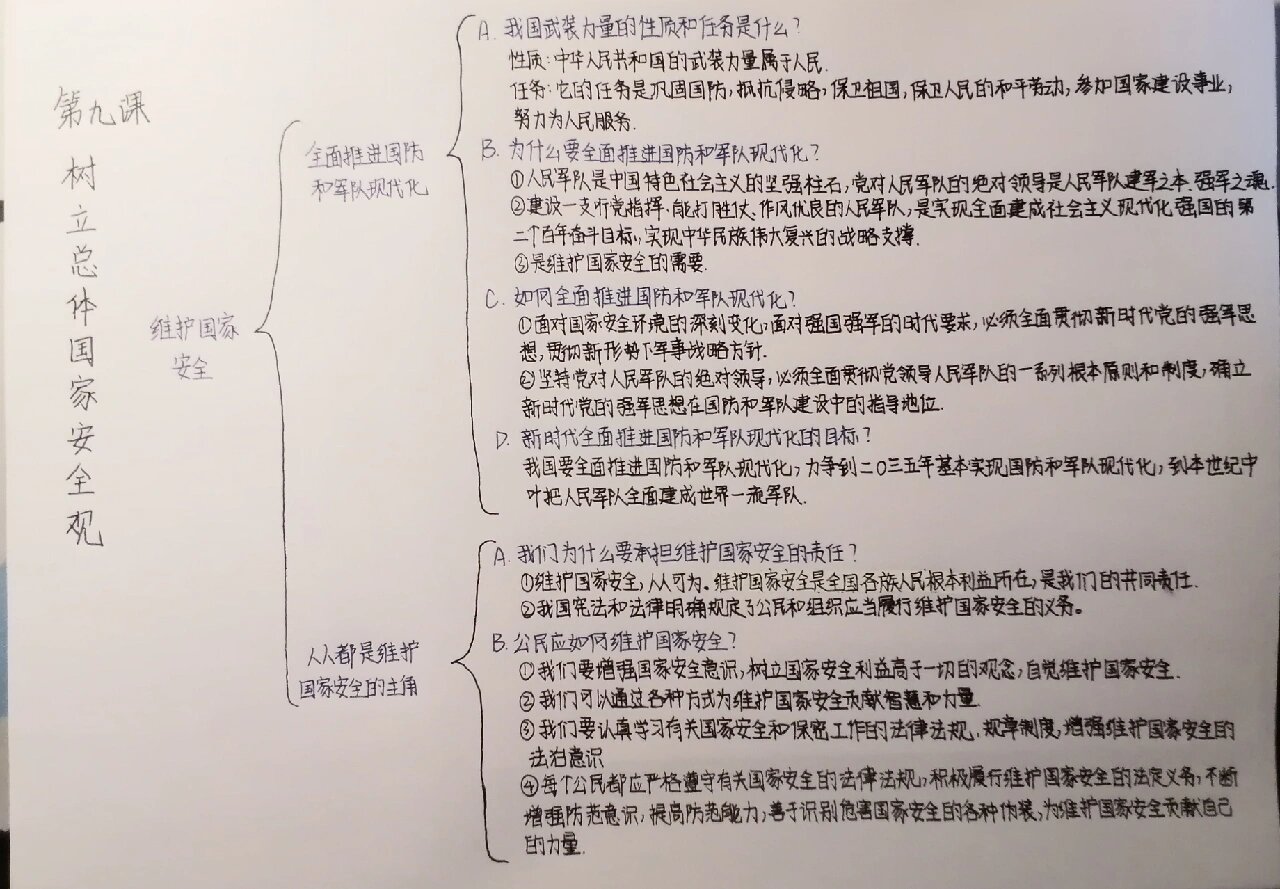 第九课
树立总体国家安全观
维护国家
安全
全面推进国防
和军队现代化
A. 我国武装力量的性质和任务是什么？
性质：中华人民共和国的武装力量属于人民.
任务：它的任务是巩固国防，抵抗侵略，保卫祖国，保卫人民的和平劳动，参加国家建设事业，
努力为人民服务.
B. 为什么要全面推进国防和军队现代化？
①人民军队是中国特色社会主义的坚强柱石，党对人民军队的绝对领导是人民军队建军之本、强军之魂.
②建设一支听党指挥、能打胜仗、作风优良的人民军队，是实现全面建成社会主义现代化强国的第
二个百年奋斗目标，实现中华民族伟大复兴的战略支撑.
③是维护国家安全的需要.
C. 如何全面推进国防和军队现代化？
①面对国家安全环境的深刻变化，面对强国强军的时代要求，必须全面贯彻新时代党的强军思
想，贯彻新形势下军事战略方针.
②坚持党对人民军队的绝对领导，必须全面贯彻党领导人民军队的一系列根本原则和制度，确立
新时代党的强军思想在国防和军队建设中的指导地位.
D. 新时代全面推进国防和军队现代化的目标？
我国要全面推进国防和军队现代化，力争到二〇三五年基本实现国防和军队现代化，到本世纪中
叶把人民军队全面建成世界一流军队.
人人都是维护
国家安全的主角
A. 我们为什么要承担维护国家安全的责任？
①维护国家安全，人人可为。维护国家安全是全国各族人民根本利益所在，是我们的共同责任.
②我国宪法和法律明确规定了公民和组织应当履行维护国家安全的义务。
B. 公民应如何维护国家安全？
①我们要增强国家安全意识，树立国家安全利益高于一切的观念，自觉维护国家安全.
②我们可以通过各种方式为维护国家安全贡献智慧和力量.
③我们要认真学习有关国家安全和保密工作的法律法规、规章制度，增强维护国家安全的
法治意识
④每个公民都应严格遵守有关国家安全的法律法规，积极履行维护国家安全的法定义务，不断
增强防范意识，提高防范能力，善于识别危害国家安全的各种伪装，为维护国家安全贡献自己
的力量.